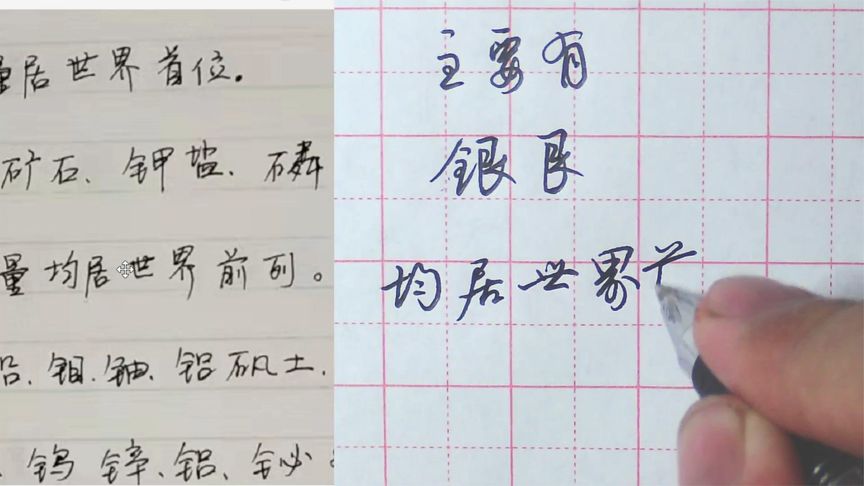 量居世界首位。
矿石、钾盐、磷
量均居世界前列。
铅、钼、铀、铝矾土、
、钨、锌、铝、铋、
主要有
银艮
均居世界